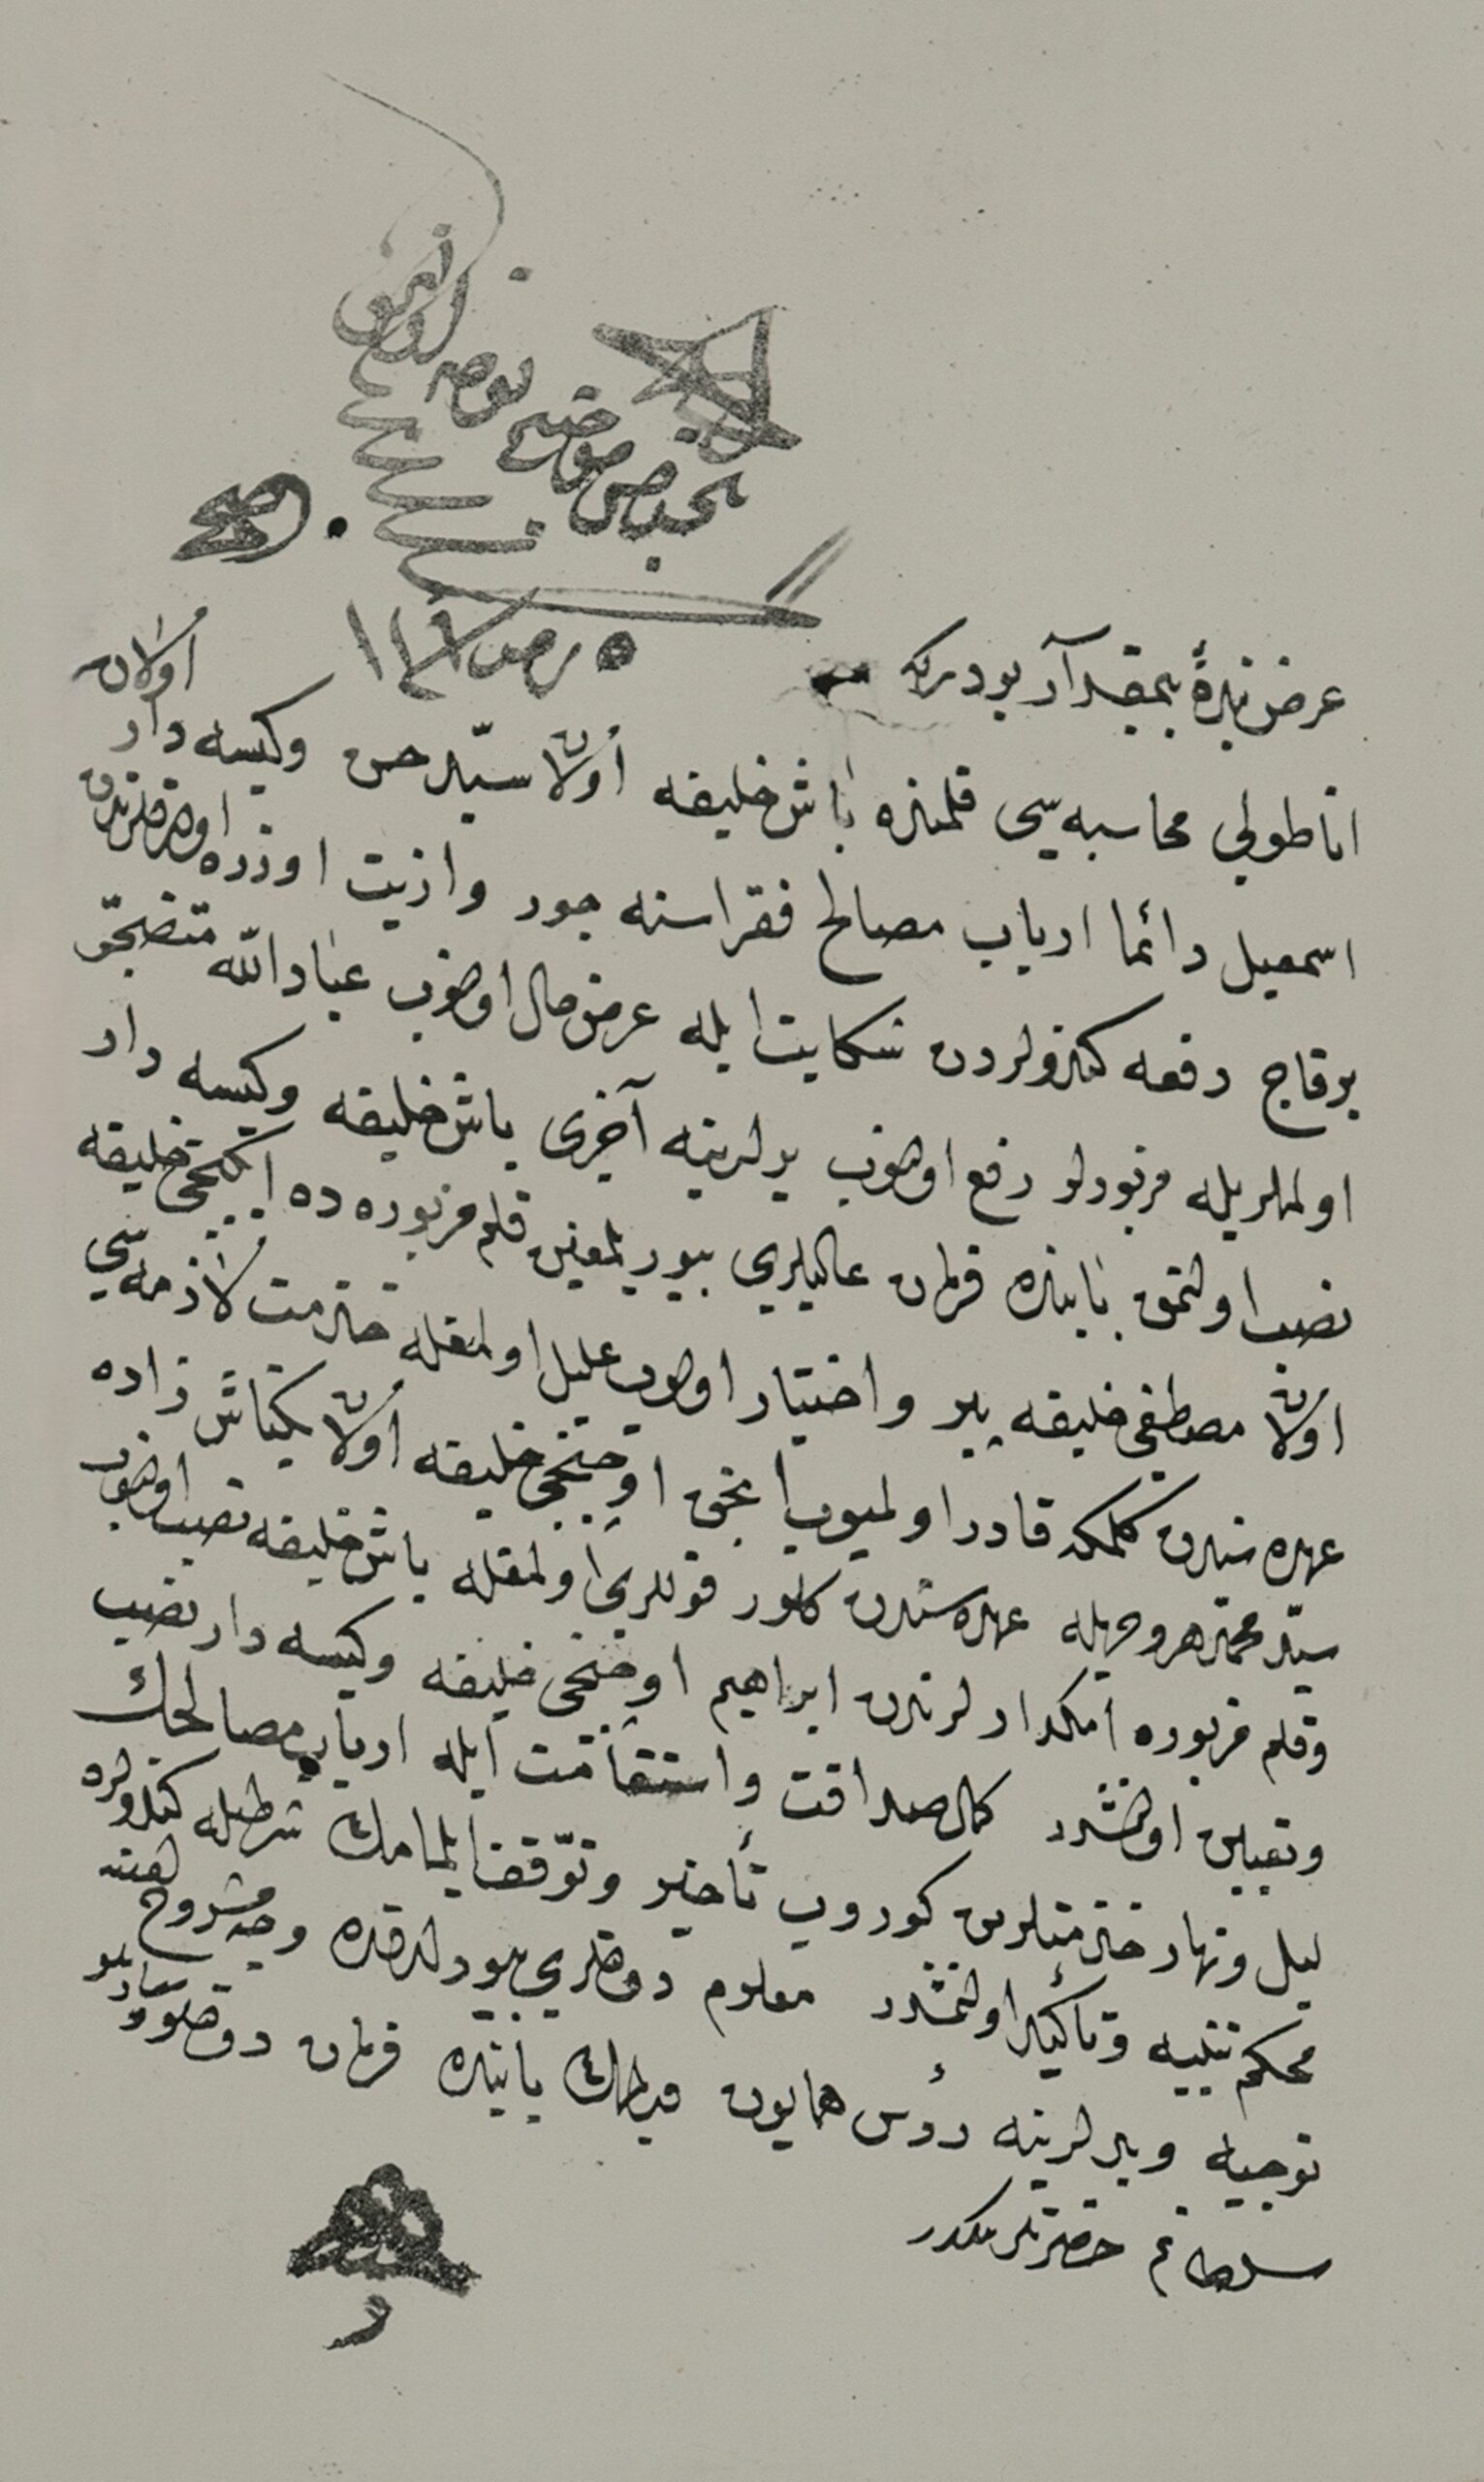 تلخيصى موجبنجه توجيه اولنمق
صح
٥ ر سنه ١١٤٦
عرض بندهٔ بيمقدار بودركه
اناطولى محاسبه سى قلمنده باش خليفه اولان سيد حسن وكيسه دار اولان
اسمعيل دائما ارباب مصالح فقراسنه جور واذيت اوزره اولدقلرندن
برقاچ دفعه كندولردن شكايت ايله عرضحال اولنوب عباد الله متضجر
اولملريله مزبورلر رفع اولنوب يرلرينه آخرى باش خليفه وكيسه دار
نصب اولنمق بابنده فرمان عاليلرى بيورلمغين قلم مزبورده ايكنجى خليفه
اولان مصطفى خليفه پير واختيار اولوب عليل اولمغله خدمت لازمه سى
عهده سندن كلمكه قادر اولميوب انجق اوچنجى خليفه اولان بكتاش زاده
سيد محمد هر وجهله عهده سندن كلور قوللرى اولمغله باش خليفه نصب اولنوب
وقلم مزبوره امكدارلرندن ابراهيم اوچنجى خليفه وكيسه دار نصب
وتعيين اولنمشدر كمال صداقت واستقامت ايله ارباب مصالحك
ليل ونهار خدمتلرين كوروب تأخير وتوقف ايلمامك شرطيله كندولره
محكم تنبيه وتأكيد اولنمشدر معلوم دولتلرى بيورلدقده وجه مشروح اوزره
توجيه ويدلرينه رؤس همايون ويرلمك بابنده فرمان دولتلو سعادتلو
سلطانم حضرتلرينكدر